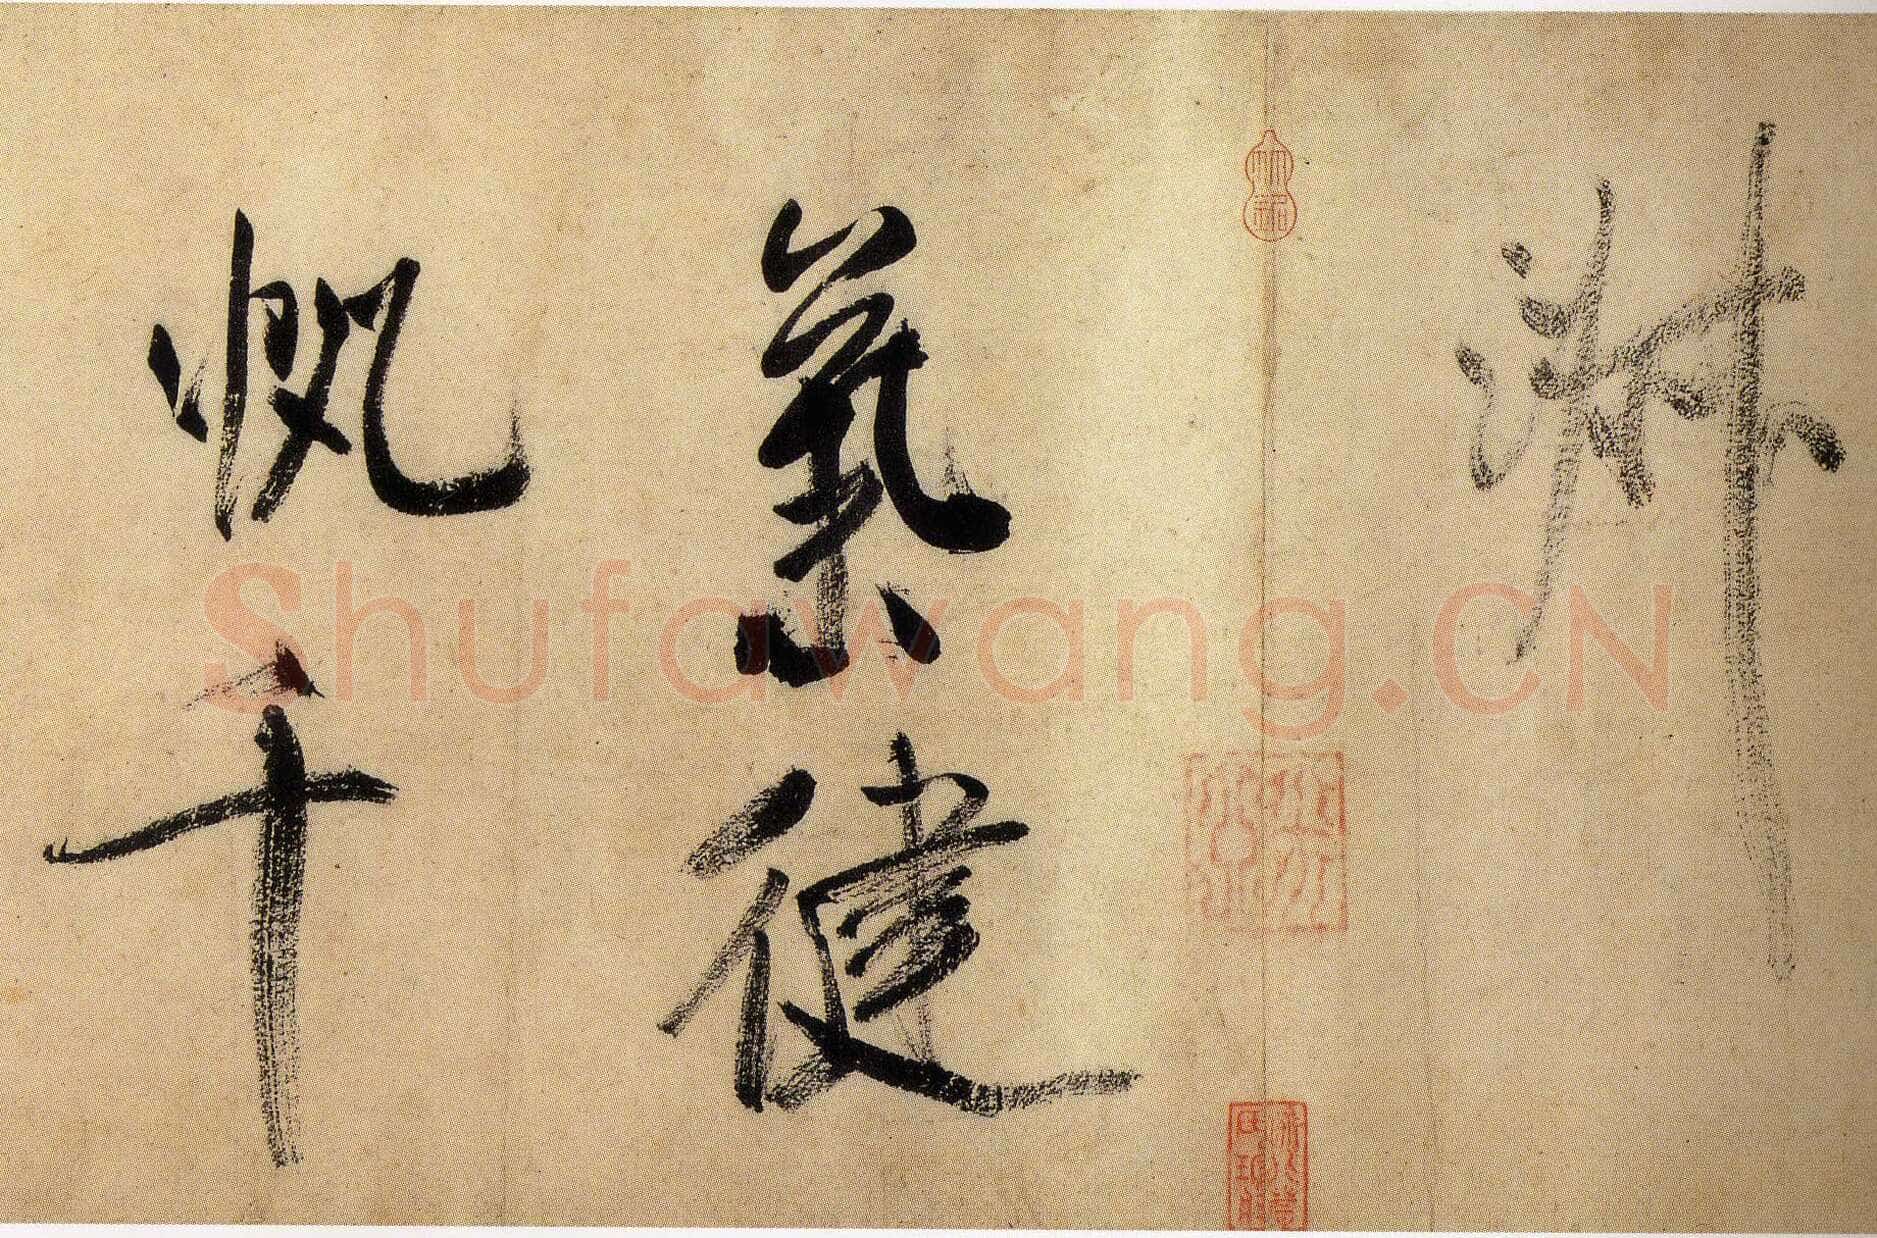 淑
氣健
帆千
Shufawang.CN